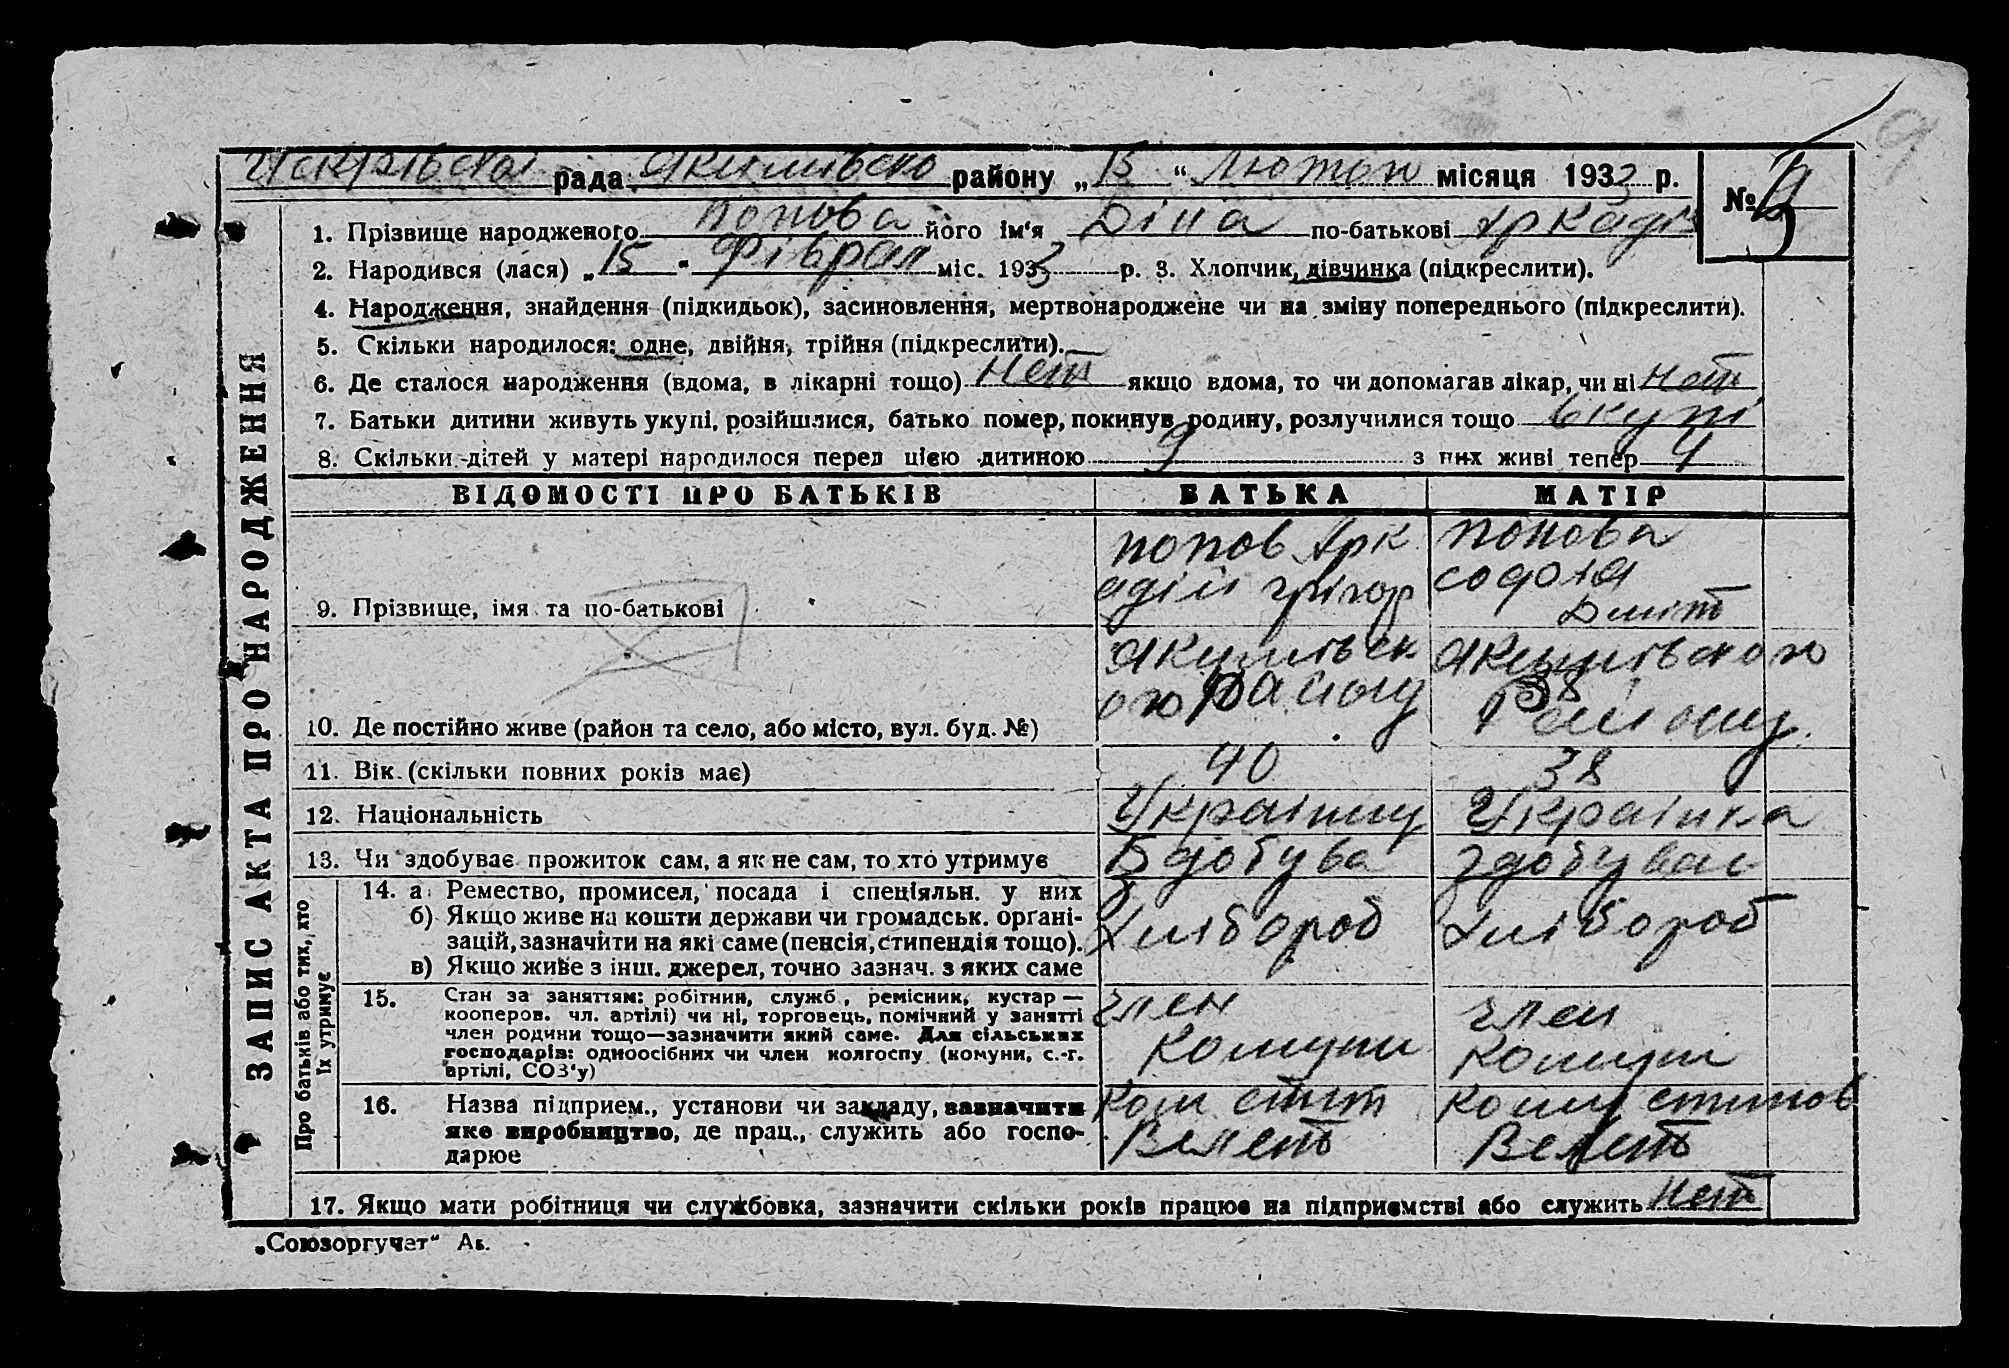 рада Якимівско району „15“ Лютог місяця 1933 р.
№ 9
1. Прізвище народженого Попова його ім‘я Діна по-батькові Аркадів
2. Народився (лася) „15“ Фіврал міс. 1933 р. 3. Хлопчик, дівчинка (підкреслити).
4. Народження, знайдення (підкидьок), засиновлення, мертвонароджене чи на зміну попереднього (підкреслити).
5. Скільки народилося: одне, двійня, трійня (підкреслити).
6. Де сталося народження (вдома, в лікарні тощо) Нет якщо вдома, то чи допомагав лікар, чи ні Нет
7. Батьки дитини живуть укупі, розійшлися, батько помер, покинув родину, розлучилися тощо вкупі
8. Скільки дітей у матері народилося перед цією дитиною 9 з них живі тепер 4
ЗАПИС АКТА ПРО НАРОДЖЕННЯ
ВІДОМОСТІ ПРО БАТЬКІВ БАТЬКА МАТІР
9. Прізвище, імя та по-батькові Попов Арк адій Грігор Попова Софія Дміт
10. Де постійно живе (район та село, або місто, вул. буд. №) Якимівск ого Району Якимівського 38 Району.
11. Вік (скільки повних років має) 40 38
12. Національність Украінец Украінка
13. Чи здобуває прожиток сам, а як не сам, то хто утримує Здобува здобуває
Про батьків або тих, хто їх утримує
14. а Ремество, промисел, посада і спеціяльн. у них
б) Якщо живе на кошти держави чи громадськ. орґані-
зацій, зазначити на які саме (пенсія, стипендія тощо). Хлібороб Хлібороб
в) Якщо живе з інш. джерел, точно зазнач. з яких саме
15. Стан за заняттям: робітник, служб., ремісник, кустар —
кооперов. чл. артілі) чи ні, торговець, помічний у занятті
член родини тощо—зазначити який саме. Для сільських
господарів: одноосібних чи член колгоспу (комуни, с.-г.
артілі, СОЗ‘у)
член Комуни член Комуни
16. Назва підприєм., установи чи закладу, зазначити
яке виробництво, де прац., служить або госпо-
дарює
17. Якщо мати робітниця чи службовка, зазначити скільки років працює на підприємстві або служить Нет
„Союзоргучет“ Ак.